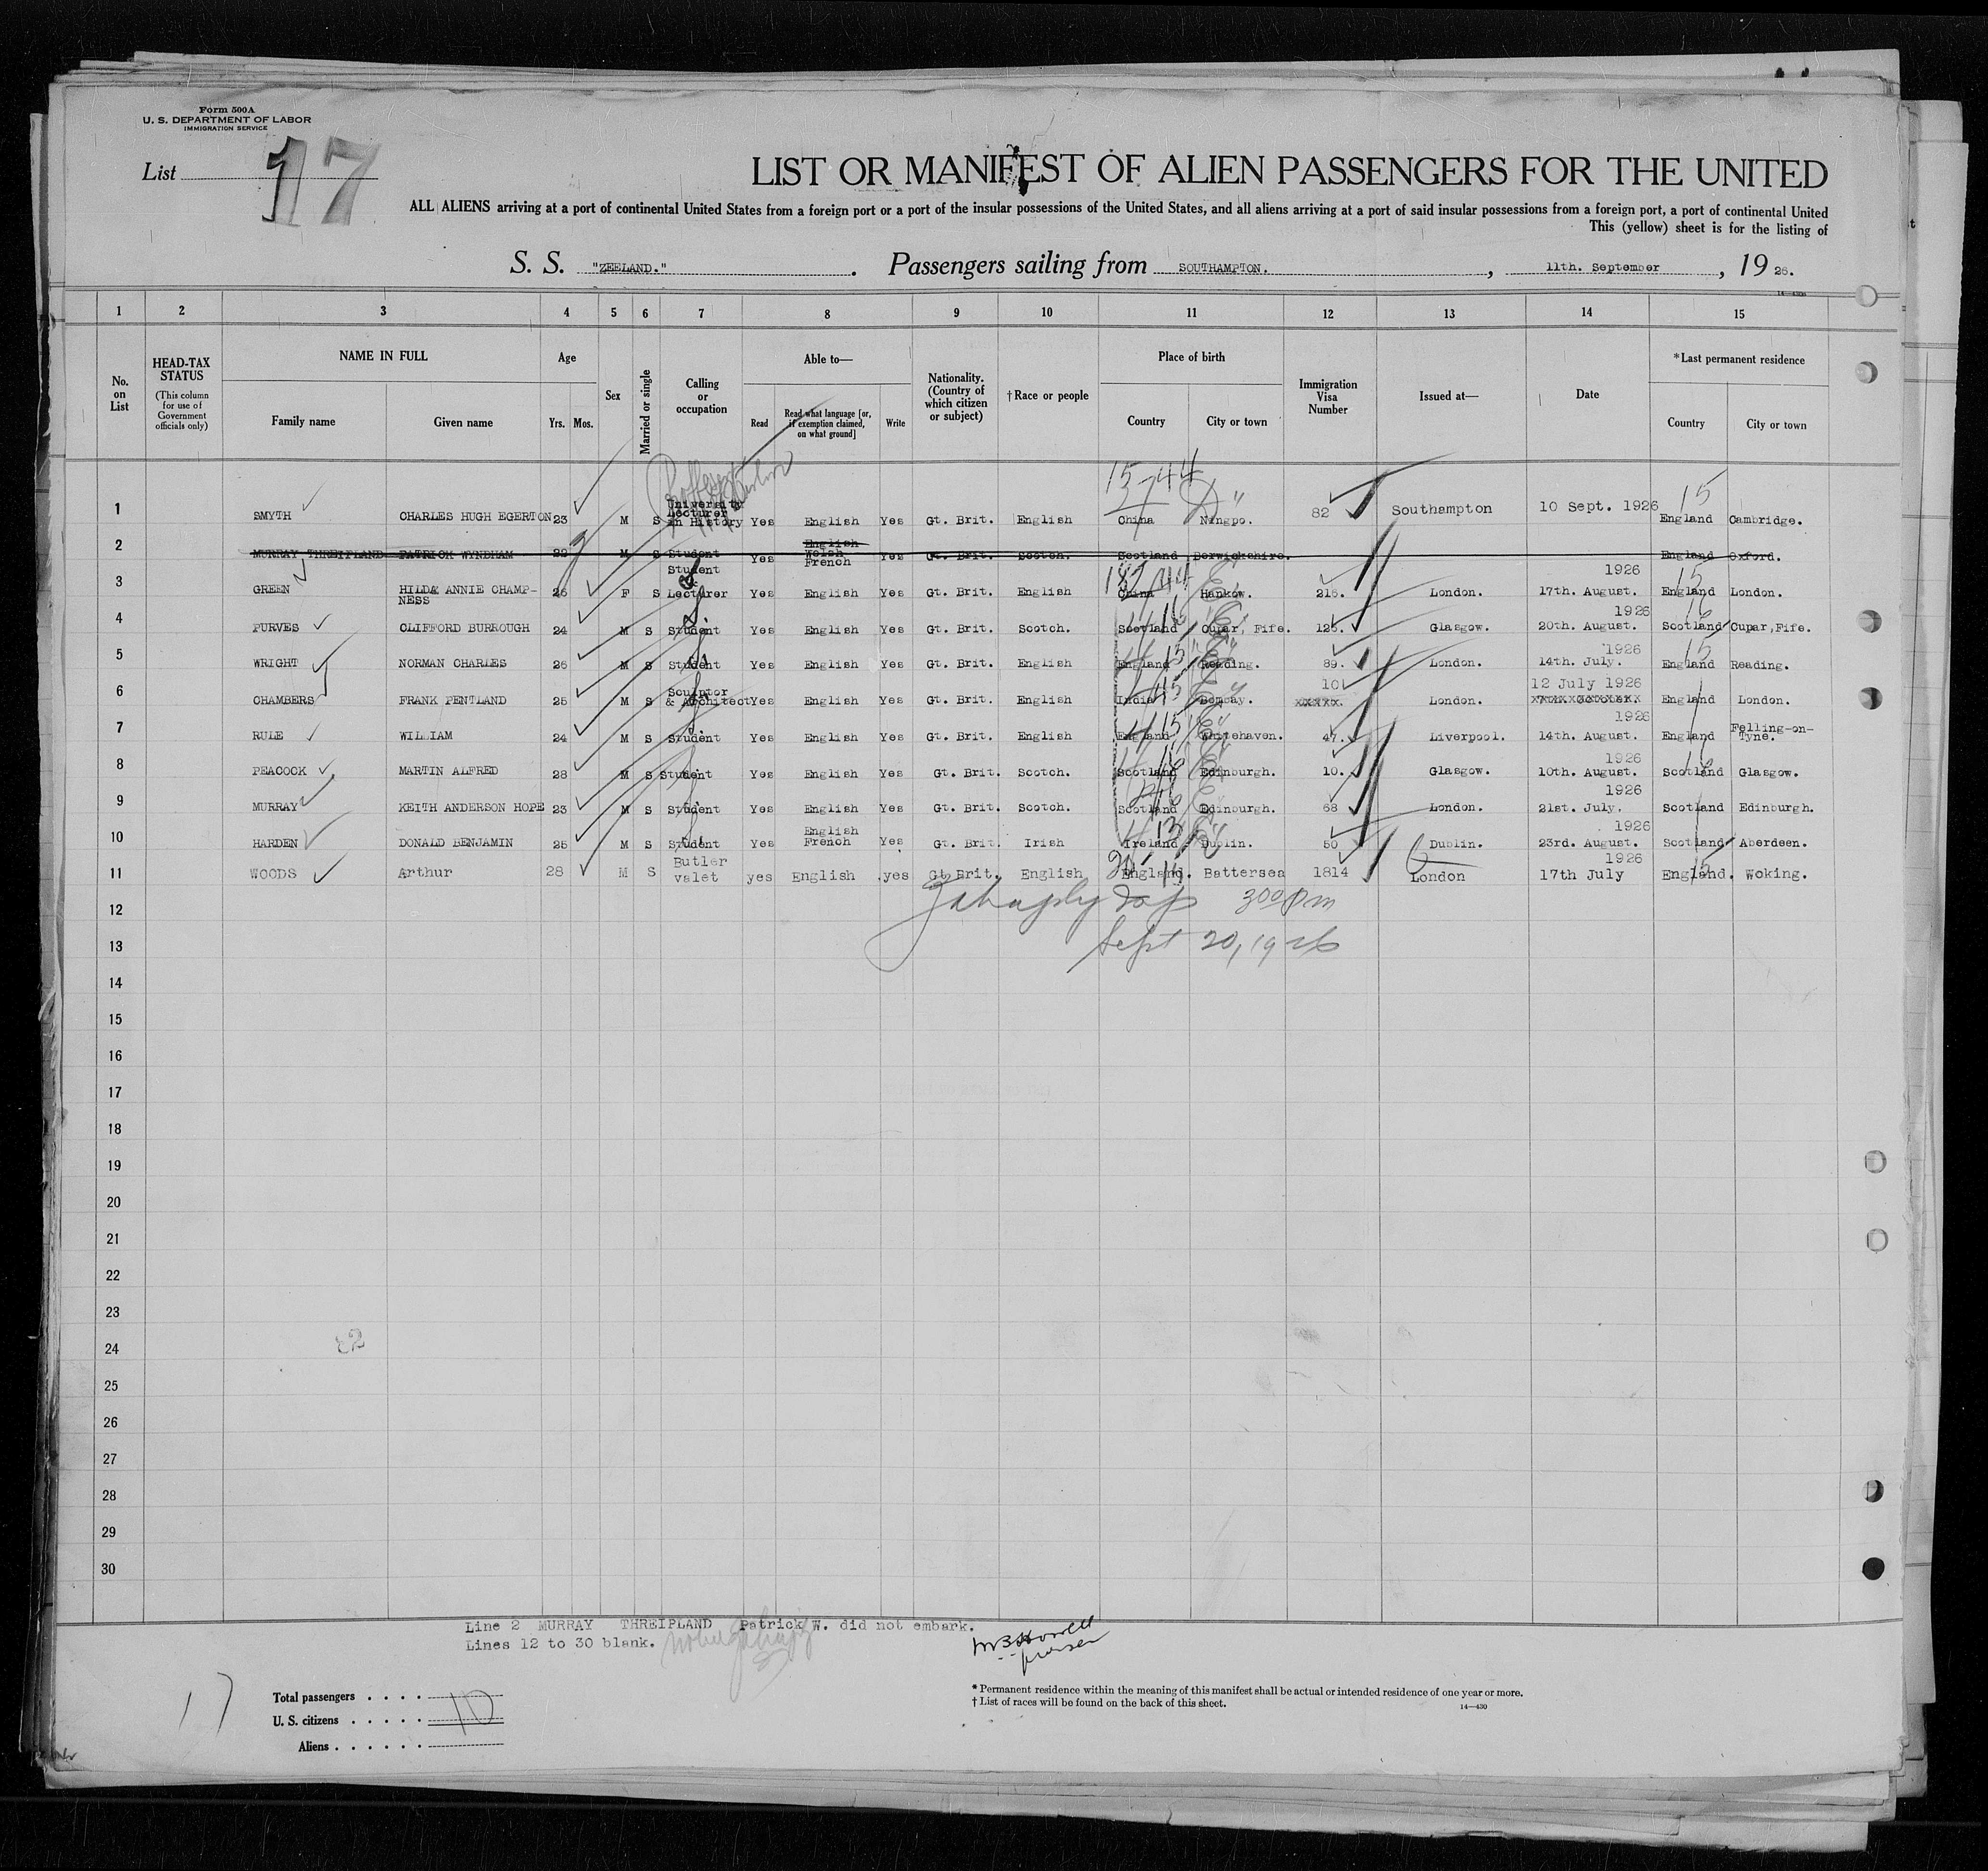 Form 500A
U. S. DEPARTMENT OF LABOR
IMMIGRATION SERVICE
List 17
LIST OR MANIFEST OF ALIEN PASSENGERS FOR THE UNITED
ALL ALIENS arriving at a port of continental United States from a foreign port or a port of the insular possessions of the United States, and all aliens arriving at a port of said insular possessions from a foreign port, a port of continental United
This (yellow) sheet is for the listing of
S. S. "ZEELAND." . Passengers sailing from SOUTHAMPTON. , 11th. September , 19 26.
1 2 3 4 5 6 7 8 9 10 11 12 13 14 15
No. on List
HEAD-TAX STATUS (This column for use of Government officials only)
NAME IN FULL
Family name Given name
Age
Yrs. Mos.
Sex
Married or single
Calling or occupation
Able to—
Read Read what language [or, if exemption claimed, on what ground] Write
Nationality. (Country of which citizen or subject)
†Race or people
Place of birth
Country City or town
Immigration Visa Number
Issued at—
Date
*Last permanent residence
Country City or town
1 SMYTH CHARLES HUGH EGERTON 23 M S University Lecturer in History Yes English Yes Gt. Brit. English China Ningpo. 82 Southampton 10 Sept. 1926 England Cambridge.
2 MURRAY THREIPLAND PATRICK WYNDHAM 22 M S Student Yes English Welsh French Yes Gt. Brit. Scotch. Scotland Berwickshire. England Oxford.
3 GREEN HILDA ANNIE CHAMP-NESS 26 F S Student & Lecturer Yes English Yes Gt. Brit. English China Hankow. 216. London. 17th. August. 1926 England London.
4 PURVES CLIFFORD BURROUGH 24 M S Student Yes English Yes Gt. Brit. Scotch. Scotland Cupar, Fife. 125. Glasgow. 20th. August. 1926 Scotland Cupar,Fife.
5 WRIGHT NORMAN CHARLES 26 M S Student Yes English Yes Gt. Brit. English England Reading. 89. London. 14th. July. 1926 England Reading.
6 CHAMBERS FRANK PENTLAND 25 M S Sculptor & Architect Yes English Yes Gt. Brit. English India Bombay. 10 London. 12 July 1926 England London.
7 RULE WILLIAM 24 M S Student Yes English Yes Gt. Brit. English England Whitehaven. 47. Liverpool. 14th. August. 1926 England Felling-on-Tyne.
8 PEACOCK MARTIN ALFRED 28 M S Student Yes English Yes Gt. Brit. Scotch. Scotland Edinburgh. 10. Glasgow. 10th. August. 1926 Scotland Glasgow.
9 MURRAY KEITH ANDERSON HOPE 23 M S Student Yes English Yes Gt. Brit. Scotch. Scotland Edinburgh. 68 London. 21st. July. 1926 Scotland Edinburgh.
10 HARDEN DONALD BENJAMIN 25 M S Student Yes English French Yes Gt. Brit. Irish Ireland Dublin. 50 Dublin. 23rd. August. 1926 Scotland Aberdeen.
11 WOODS Arthur 28 M S Butler valet yes English yes Gt Brit. English England. Battersea 1814 London 17th July 1926 England. Woking.
12 300 pm
13 Sept 20, 1926
14
15
16
17
18
19
20
21
22
23
24
25
26
27
28
29
30
Line 2 MURRAY THREIPLAND Patrick W. did not embark.
Lines 12 to 30 blank.
17
Total passengers . . . . 10
U. S. citizens . . . . .
Aliens . . . . . .
* Permanent residence within the meaning of this manifest shall be actual or intended residence of one year or more.
† List of races will be found on the back of this sheet.
14—430